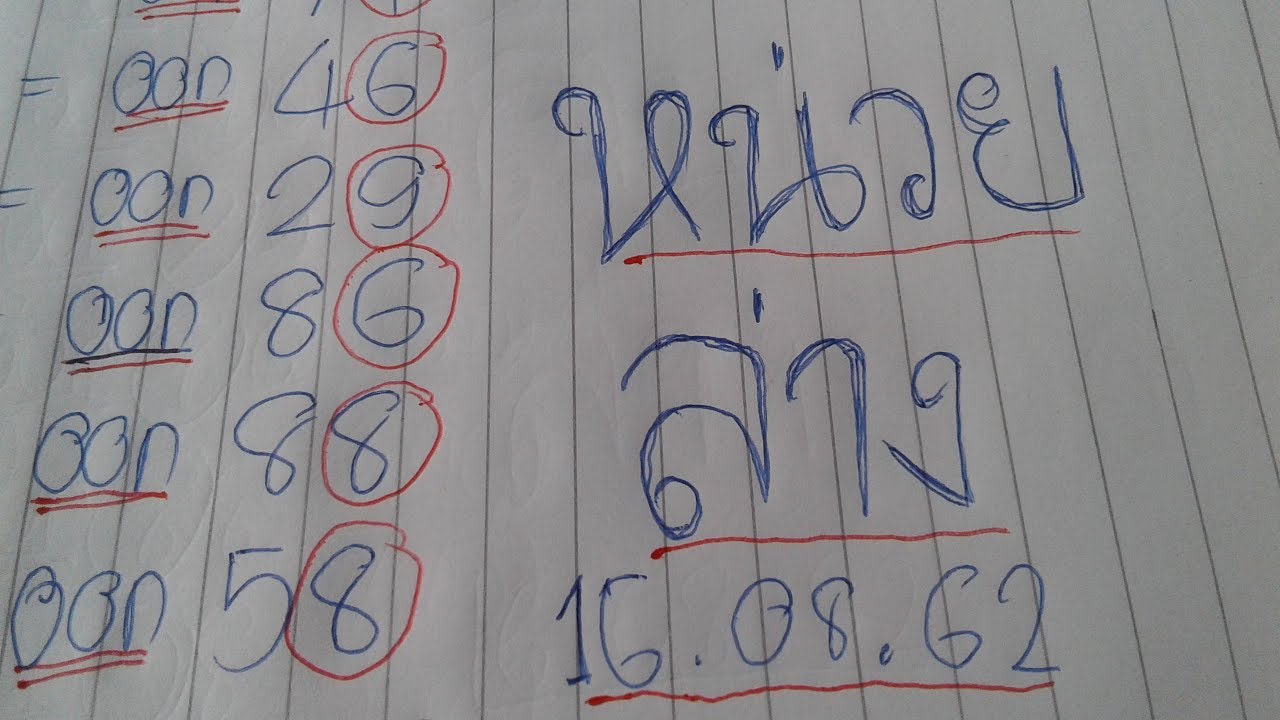 = ออก 46
= ออก 29
ออก 86
ออก 88
ออก 58
หน่วย
ล่าง
16.08.62